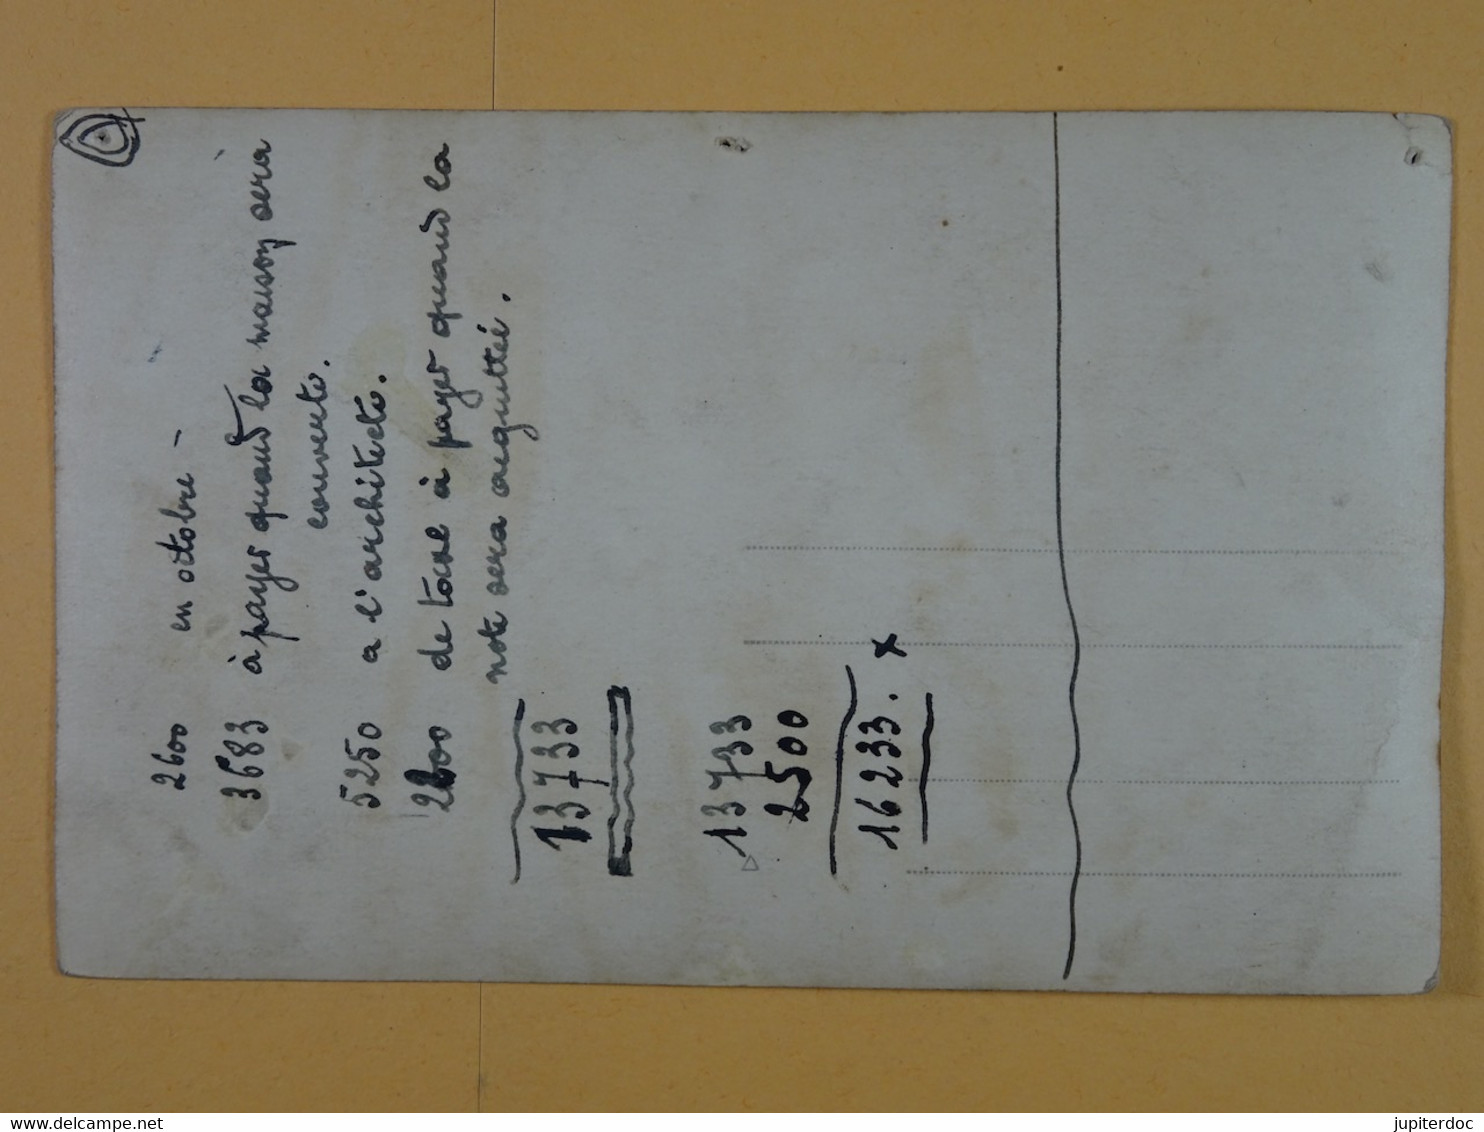 2600 en octobre -
3683 à payer quand la maison sera
couverte.
5250 a l'architecte.
2200 de taxe à payer quand la
note sera acquittée.
13733
13733
2500
16233. x
jupiterdoc